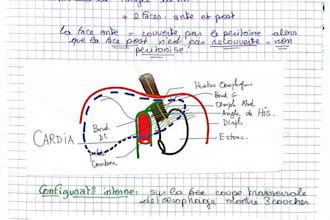 + 2 faces: ante et post
la face ante - couverte par le péritoine alors
que la face post n'est pas recouverte - non
péritonisé.
Hiatus Œsophagien
Bord G
Angle de HIS.
Diaph
Estomac.
CARDIA
Bord
Dt
Configurat° interne: sur la face coupe transversale
de l'œsophage montre 3 couches